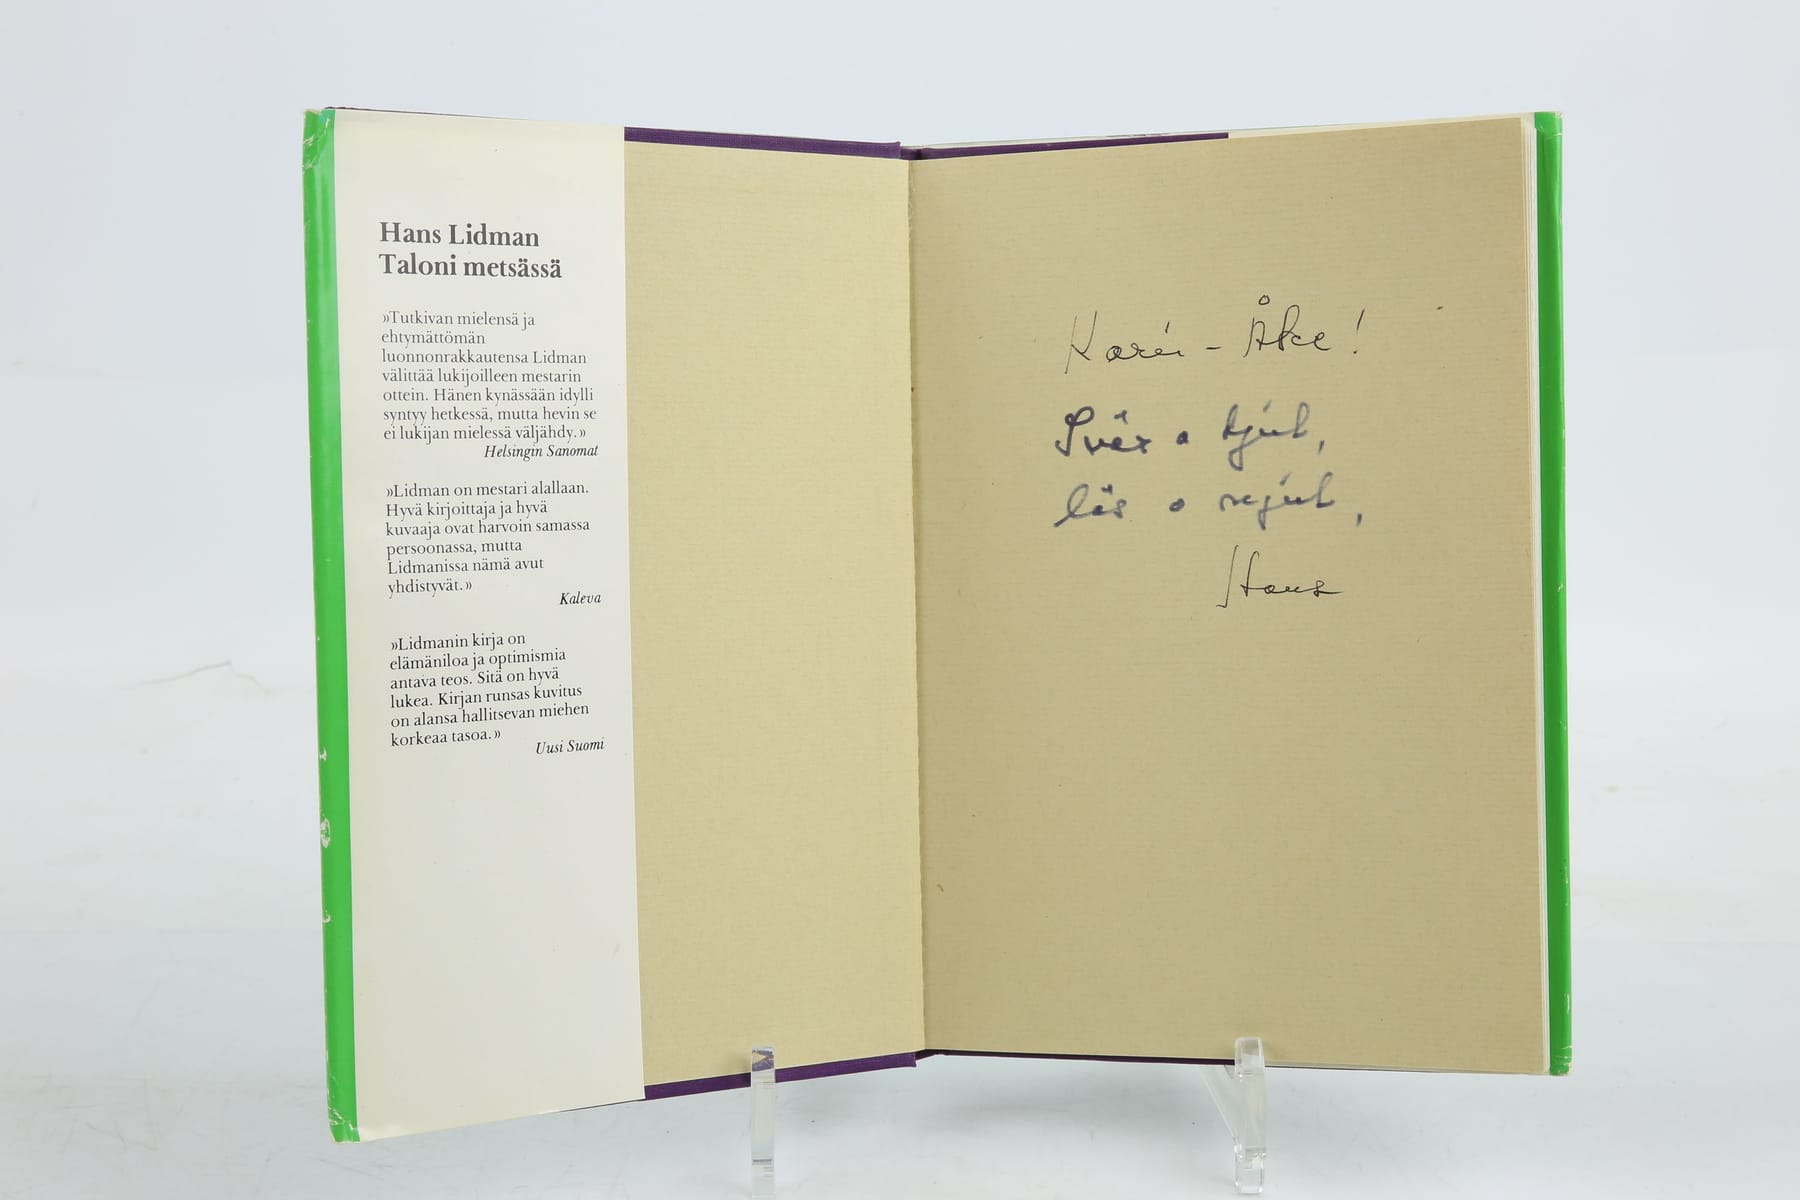 Hans Lidman
Taloni metsässä
»Tutkivan mielensä ja
ehtymättömän
luonnonrakkautensa Lidman
välittää lukijoilleen mestarin
ottein. Hänen kynässään idylli
syntyy hetkessä, mutta hevin se
ei lukijan mielessä väljähdy.»
Helsingin Sanomat
»Lidman on mestari alallaan.
Hyvä kirjoittaja ja hyvä
kuvaaja ovat harvoin samassa
persoonassa, mutta
Lidmanissa nämä avut
yhdistyvät.»
Kaleva
»Lidmanin kirja on
elämäniloa ja optimismia
antava teos. Sitä on hyvä
lukea. Kirjan runsas kuvitus
on alansa hallitsevan miehen
korkeaa tasoa.»
Uusi Suomi
- Åke!
läs o njut,
Hans